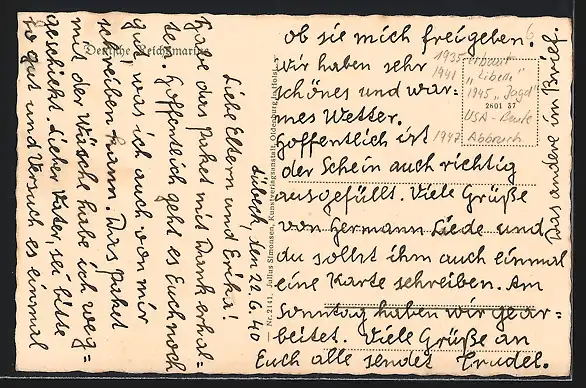 Deutsche Reichsmarine
Lübeck, den 22. 6. 40
Liebe Eltern und Erika!
Habe das Paket mit Dank erhal=
ten. Hoffentlich geht es Euch noch
gut, was ich auch von mir
schreiben kann. Das Paket
mit der Wäsche habe ich weg=
geschickt. Lieber Vater, sei bitte
so gut und versuch es einmal
ob sie mich freigeben.
Wir haben sehr
schönes und war=
mes Wetter.
Hoffentlich ist
der Schein auch richtig
ausgefüllt. Viele Grüße
von Hermann Liede und
du sollst ihm auch einmal
eine Karte schreiben. Am
Sonntag haben wir gear=
beitet. Viele Grüße an
Euch alle sendet Trudel.
Das andere im Brief.
Nr. 2141. Julius Simonsen, Kunstverlagsanstalt, Oldenburg i. Holst.
6
1935 erbaut
1941 „Libelle"
1945 „Jagd"
2601 37
USA-Beute
1947 Abbruch